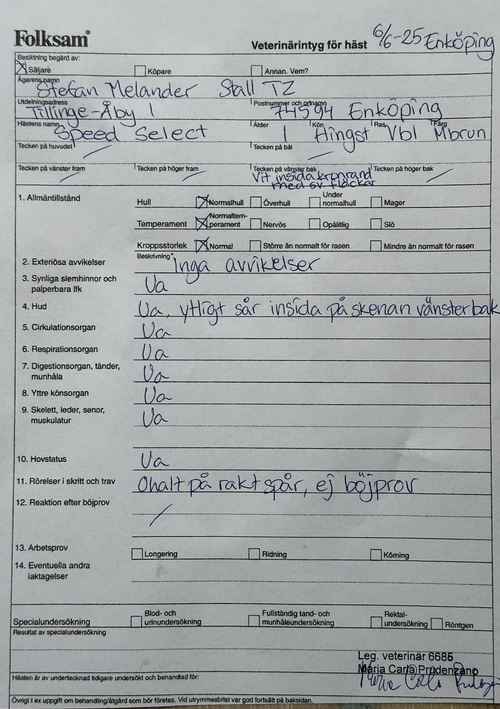 Folksam
Veterinärintyg för häst 6/6-25 Enköping
Besiktning begärd av:
Säljare Köpare Annan. Vem?
Ägarens namn
Stefan Melander Stall TZ
Utdelningsadress Postnummer och ortnamn
Tillinge-Åby 1 74594 Enköping
Hästens namn Ålder Kön Ras Färg
Speed Select 1 Hingst Vbl Mbrun
Tecken på huvudet Tecken på bål
Tecken på vänster fram Tecken på höger fram Tecken på vänster bak Tecken på höger bak
Vit insida kronrand
med sv. fläckar
1. Allmäntillstånd Hull Normalhull Överhull Under normalhull Mager
Temperament Normaltemperament Nervös Opålitlig Slö
Kroppsstorlek Normal Större än normalt för rasen Mindre än normalt för rasen
2. Exteriösa avvikelser Beskrivning Inga avvikelser
3. Synliga slemhinnor och
palperbara lfk Ua
4. Hud Ua, ytligt sår insida på skenan vänster bak
5. Cirkulationsorgan Ua
6. Respirationsorgan Ua
7. Digestionsorgan, tänder,
munhåla Ua
8. Yttre könsorgan Ua
9. Skelett, leder, senor,
muskulatur Ua
10. Hovstatus Ua
11. Rörelser i skritt och trav Ohalt på rakt spår, ej böjprov
12. Reaktion efter böjprov /
13. Arbetsprov Longering Ridning Körning
14. Eventuella andra
iakttagelser
Specialundersökning Blod- och urinundersökning Fullständig tand- och munhåleundersökning Rektal-undersökning Röntgen
Resultat av specialundersökning
Leg. veterinär 6685
Maria Carla Prudenzano
Hästen är av undertecknad tidigare undersökt och behandlad för:
Övrigt t ex uppgift om behandling/åtgärd som bör företas. Vid utrymmesbrist var god fortsätt på baksidan.